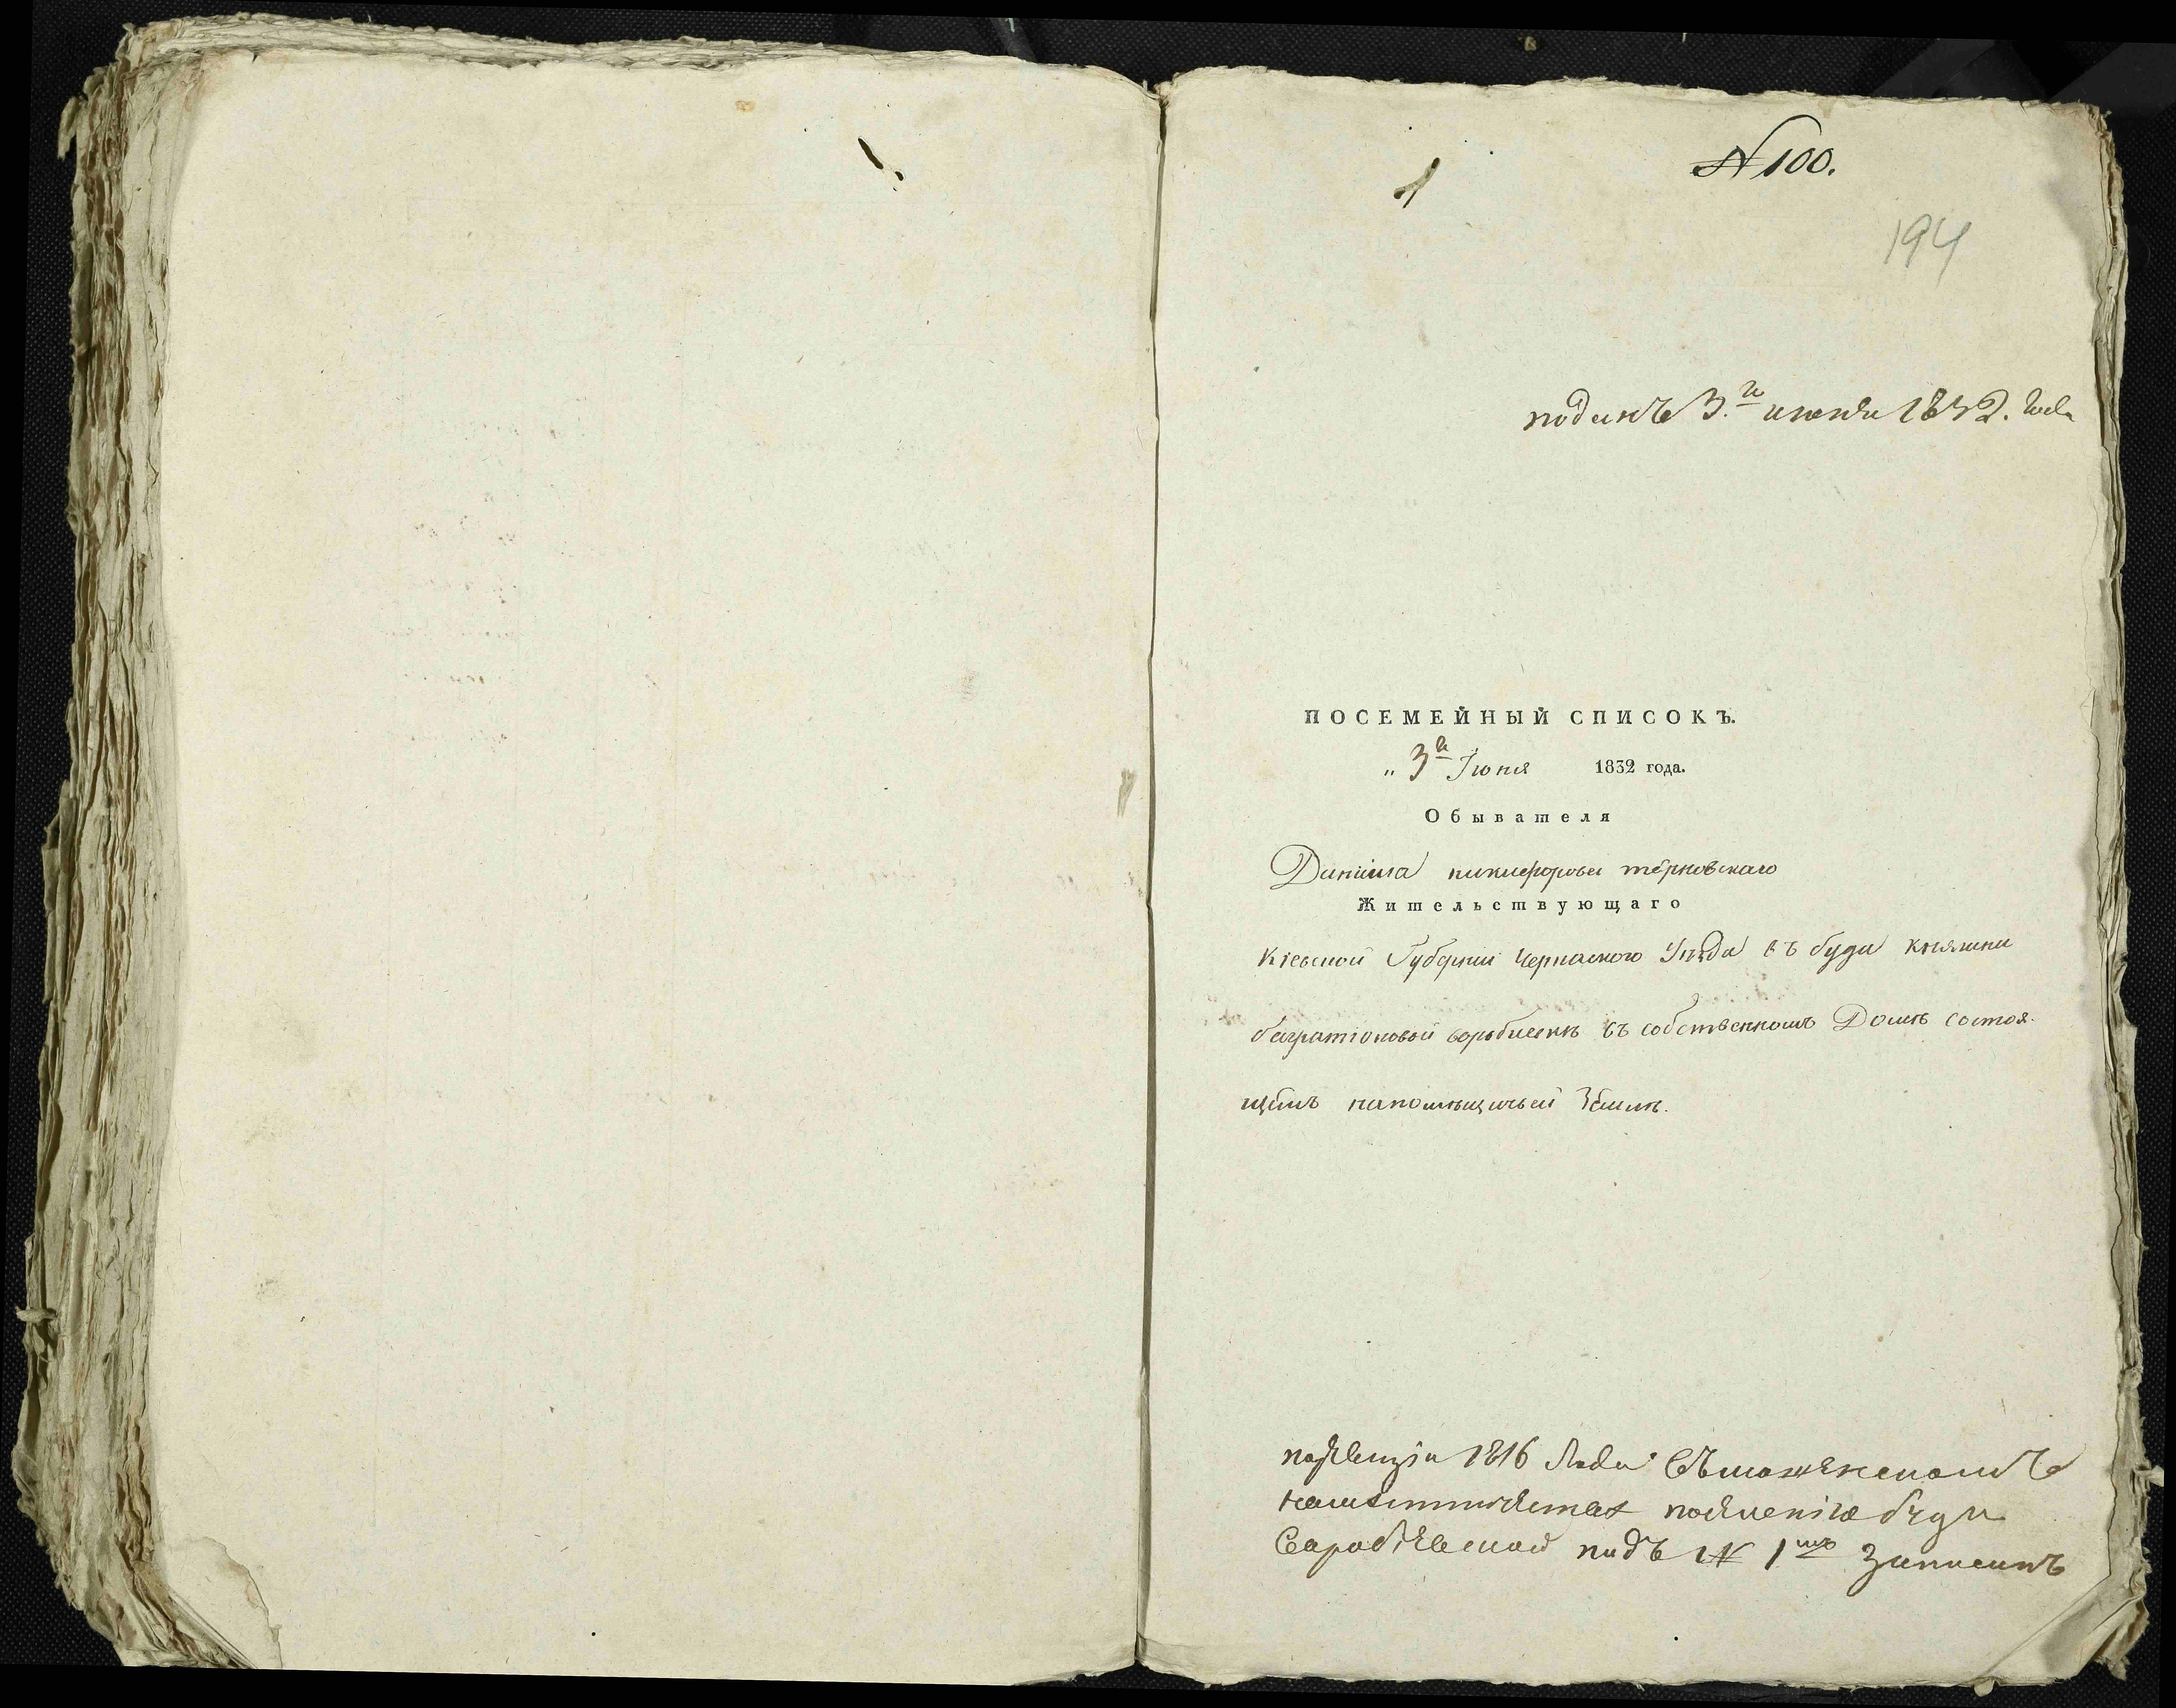 № 100.
194
поданъ 3.го июня 1832. года
ПОСЕМЕЙНЫЙ СПИСОКЪ.
„ 3го Іюня 1832 года.
Обывателя
Даніила никифорова терновскаго
Жительствующаго
Кіевской Губерніи Черкаского Уѣзда въ буди княгини
багратіоновой воробиевкѣ въ собственномъ Домѣ состоя-
щемъ напомѣщичьей Землѣ.
поревизіи 1816 года
поселенія буди
подъ № 1мъ записанъ